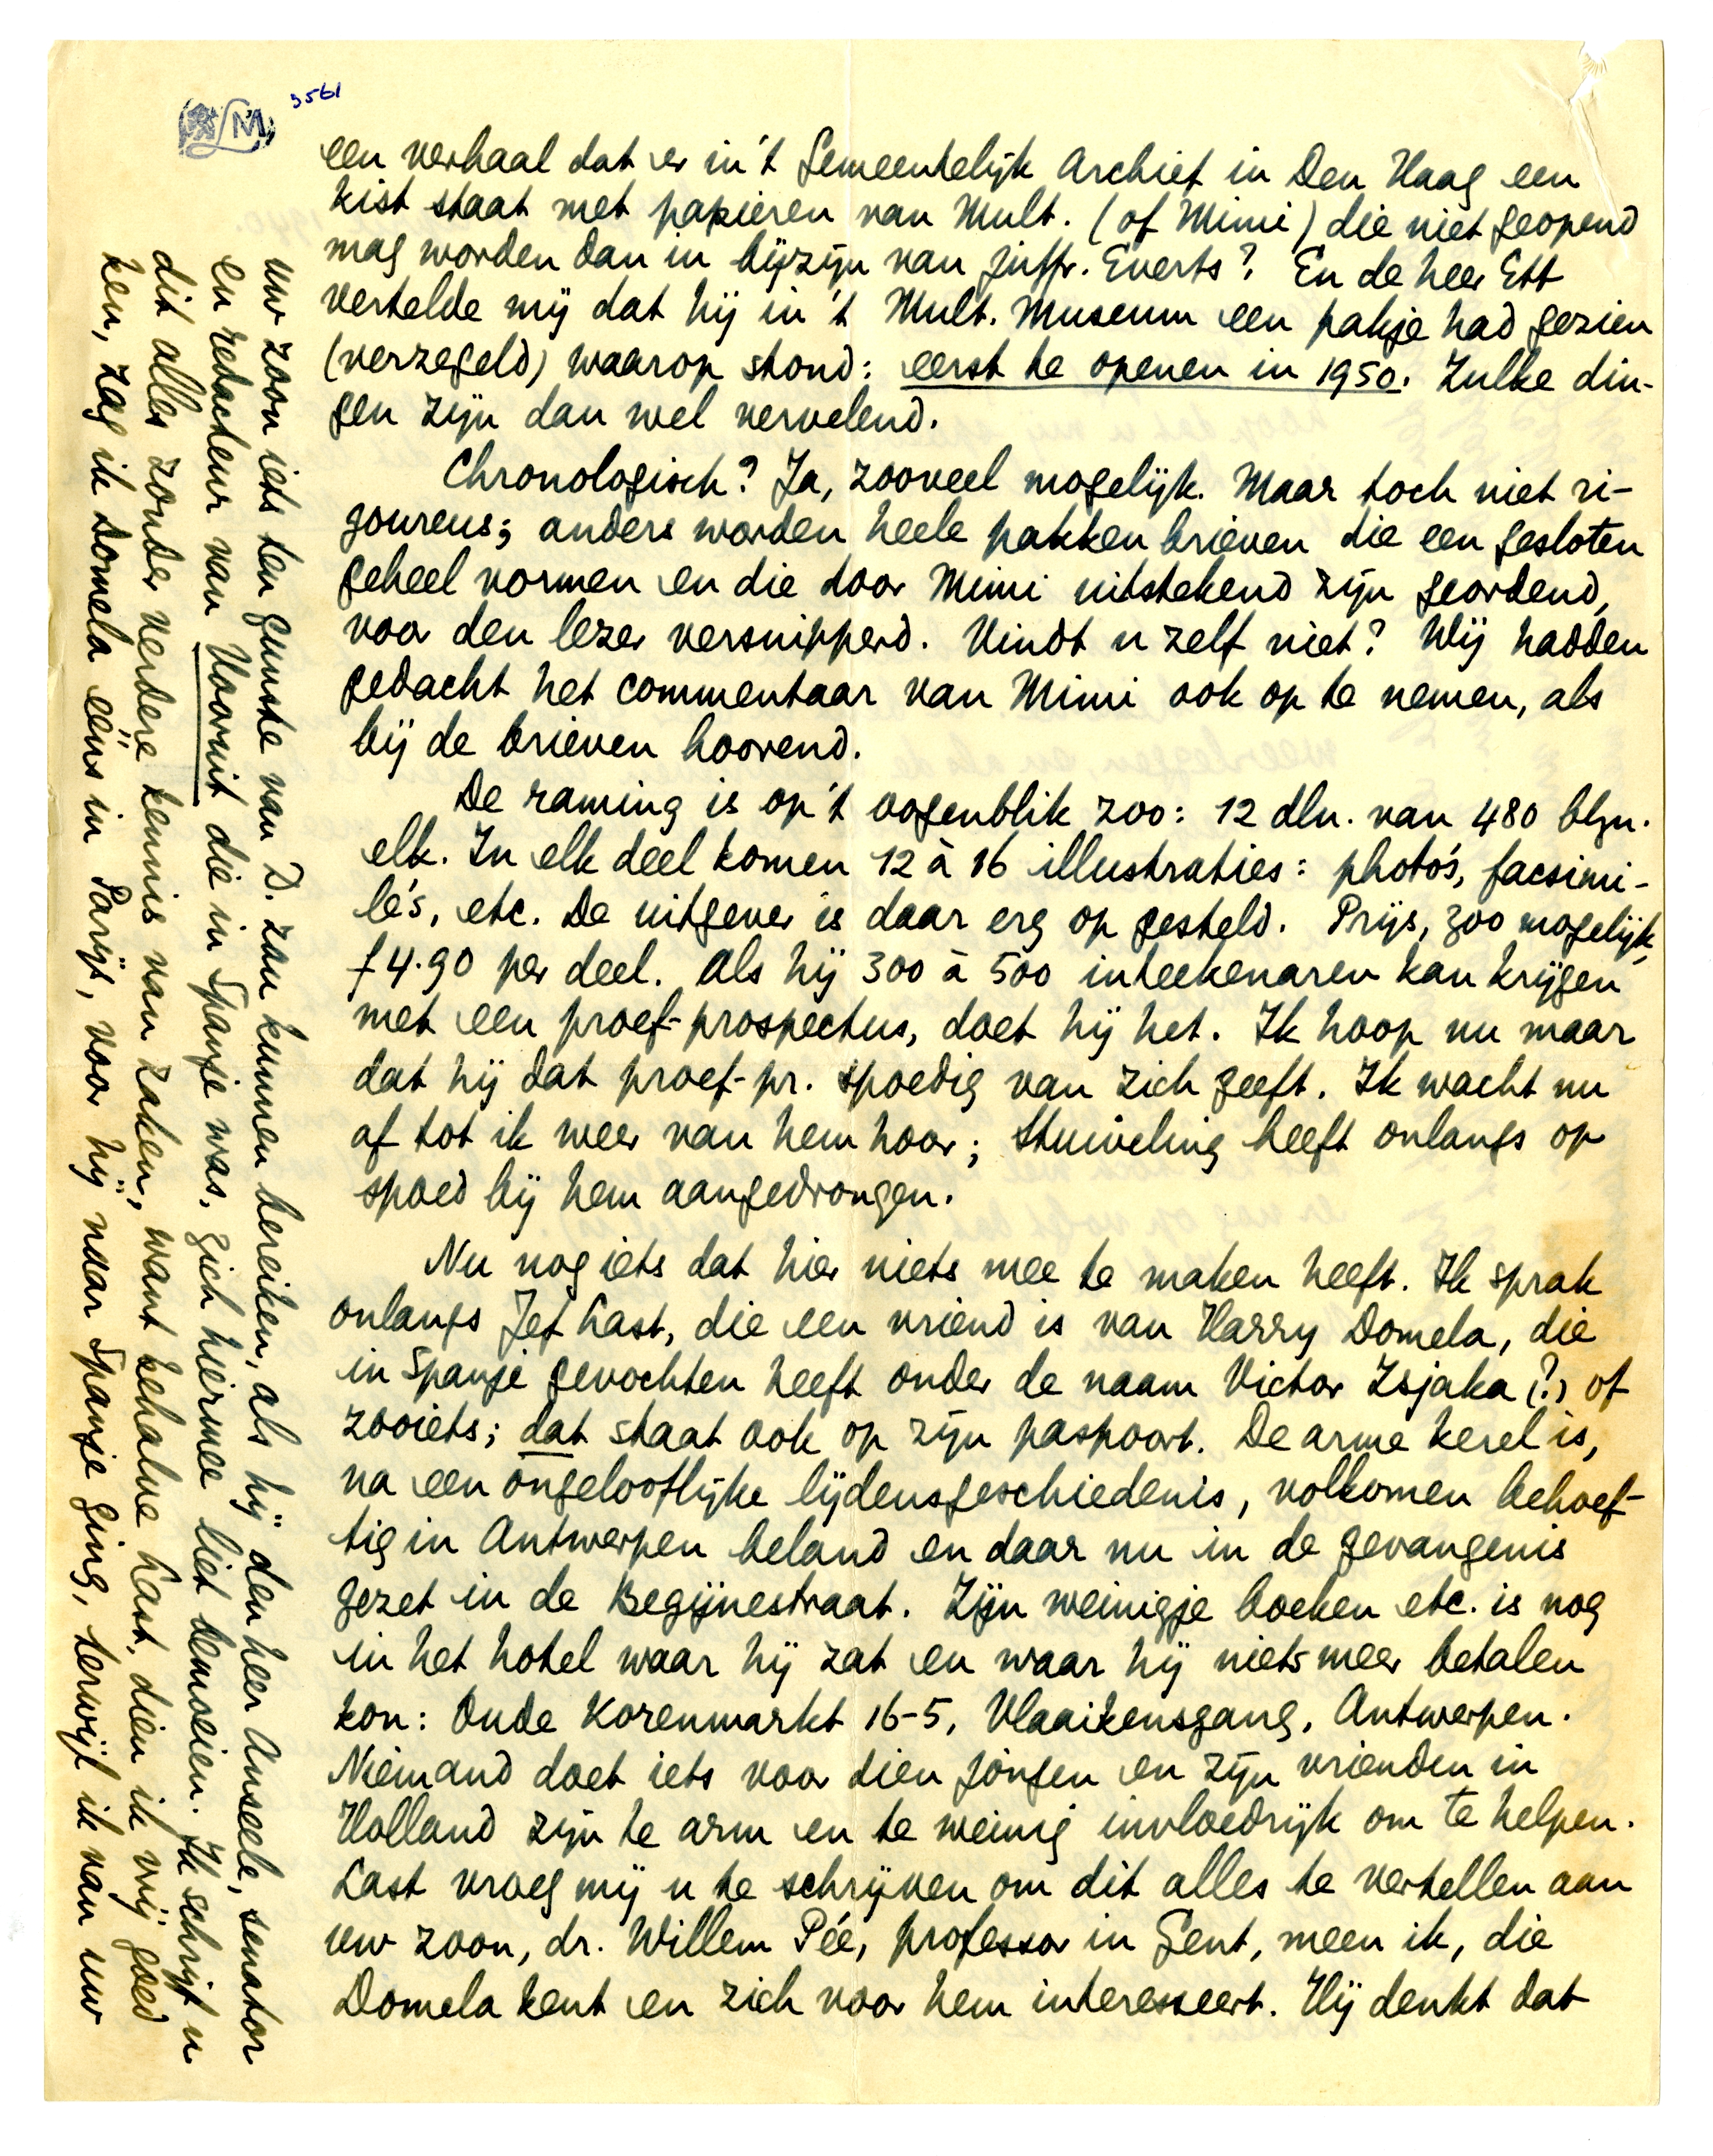 3561
LM
een verhaal dat er in 't Gemeentelijk Archief in Den Haag een
kist staat met papieren van Mult. (of Mimi) die niet geopend
mag worden dan in bijzijn van juffr. Everts? En de heer Ett
vertelde mij dat hij in 't Mult. Museum een pakje had gezien
(verzegeld) waarop stond: eerst te openen in 1950. Zulke din-
gen zijn dan wel vervelend.
Chronologisch? Ja, zooveel mogelijk. Maar toch niet ri-
goureus; anders worden heele pakken brieven die een gesloten
geheel vormen en die door Mimi uitstekend zijn geordend,
voor den lezer versnipperd. Vindt u zelf niet? Wij hadden
gedacht het commentaar van Mimi ook op te nemen, als
bij de brieven hoorend.
De raming is op 't oogenblik zoo: 12 dln. van 480 blzn.
elk. In elk deel komen 12 à 16 illustraties: photo's, facsimi-
lé's, etc. De uitgever is daar erg op gesteld. Prijs, zoo mogelijk,
f 4.90 per deel. Als hij 300 à 500 inteekenaren kan krijgen
met een proef-prospectus, doet hij het. Ik hoop nu maar
dat hij dat proef-pr. spoedig van zich geeft. Ik wacht nu
af tot ik weer van hem hoor; Stuiveling heeft onlangs op
spoed bij hem aangedrongen.
Nu nog iets dat hier niets mee te maken heeft. Ik sprak
onlangs Jef Last, die een vriend is van Harry Domela, die
in Spanje gevochten heeft onder de naam Victor Zsjaka (?) of
zooiets; dat staat ook op zijn paspoort. De arme kerel is,
na een ongelooflijke lijdensgeschiedenis, volkomen behoef-
tig in Antwerpen beland en daar nu in de gevangenis
gezet in de Begijnestraat. Zijn weinigje boeken etc. is nog
in het hotel waar hij zat en waar hij niets meer betalen
kon: Oude Korenmarkt 16-5, Vlaaikensgang, Antwerpen.
Niemand doet iets voor dien jongen en zijn vrienden in
Holland zijn te arm en te weinig invloedrijk om te helpen.
Last vroeg mij u te schrijven om dit alles te vertellen aan
uw zoon, dr. Willem Pée, professor in Gent, meen ik, die
Domela kent en zich voor hem interesseert. Hij denkt dat
uw zoon iets ten gunste van D. zau kunnen bereiken, als hij den heer Anseele, senator
en redacteur van Voorruit die in Spanje was, zich hiermee liet bemoeien. Ik schrijf u
dit alles zonder verdere kennis van zaken, want behalve Last, dien ik vrij goed
ken, zag ik Domela ééns in Parijs, voor hij naar Spanje ging, terwijl ik van uw